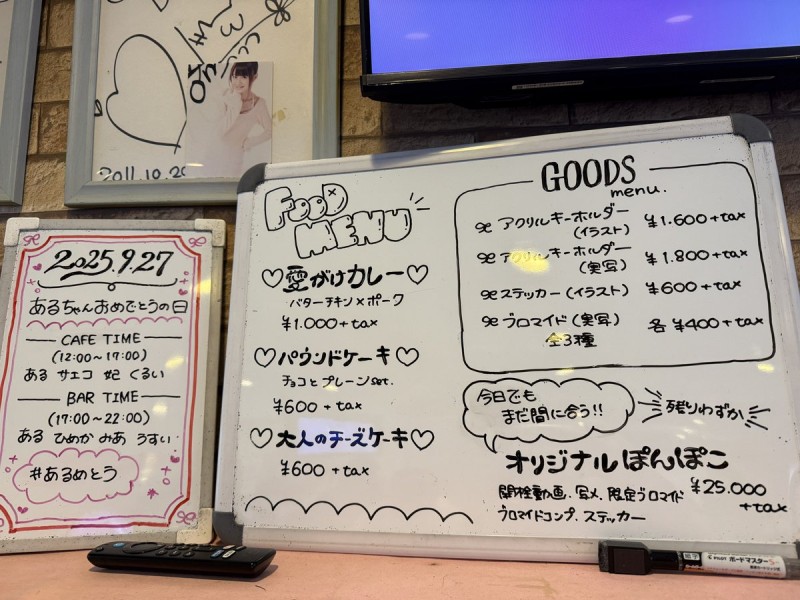 2011.10.20
2025.9.27
あるちゃんおめでとうの日
CAFE TIME
(12:00~17:00)
ある サエコ 妃 くるい
BAR TIME
(17:00~22:00)
ある ひめか みあ うすい
#あるめとう
FooD
MENU
愛がけカレー
バターチキン×ポーク
¥1.000+tax
パウンドケーキ
チョコとプレーンset.
¥600+tax
大人のチーズケーキ
¥600+tax
GOODS
menu.
アクリルキーホルダー
(イラスト)
¥1.600+tax
アクリルキーホルダー
(実写)
¥1.800+tax
ステッカー(イラスト)
¥600+tax
ブロマイド(実写)
全3種
各 ¥400+tax
今日でも
まだ間に合う!!
残りわずか
オリジナルぽんぽこ
開栓動画、写メ、限定ブロマイド
ブロマイドコンプ、ステッカー
¥25.000
+tax
PILOT ボードマスター